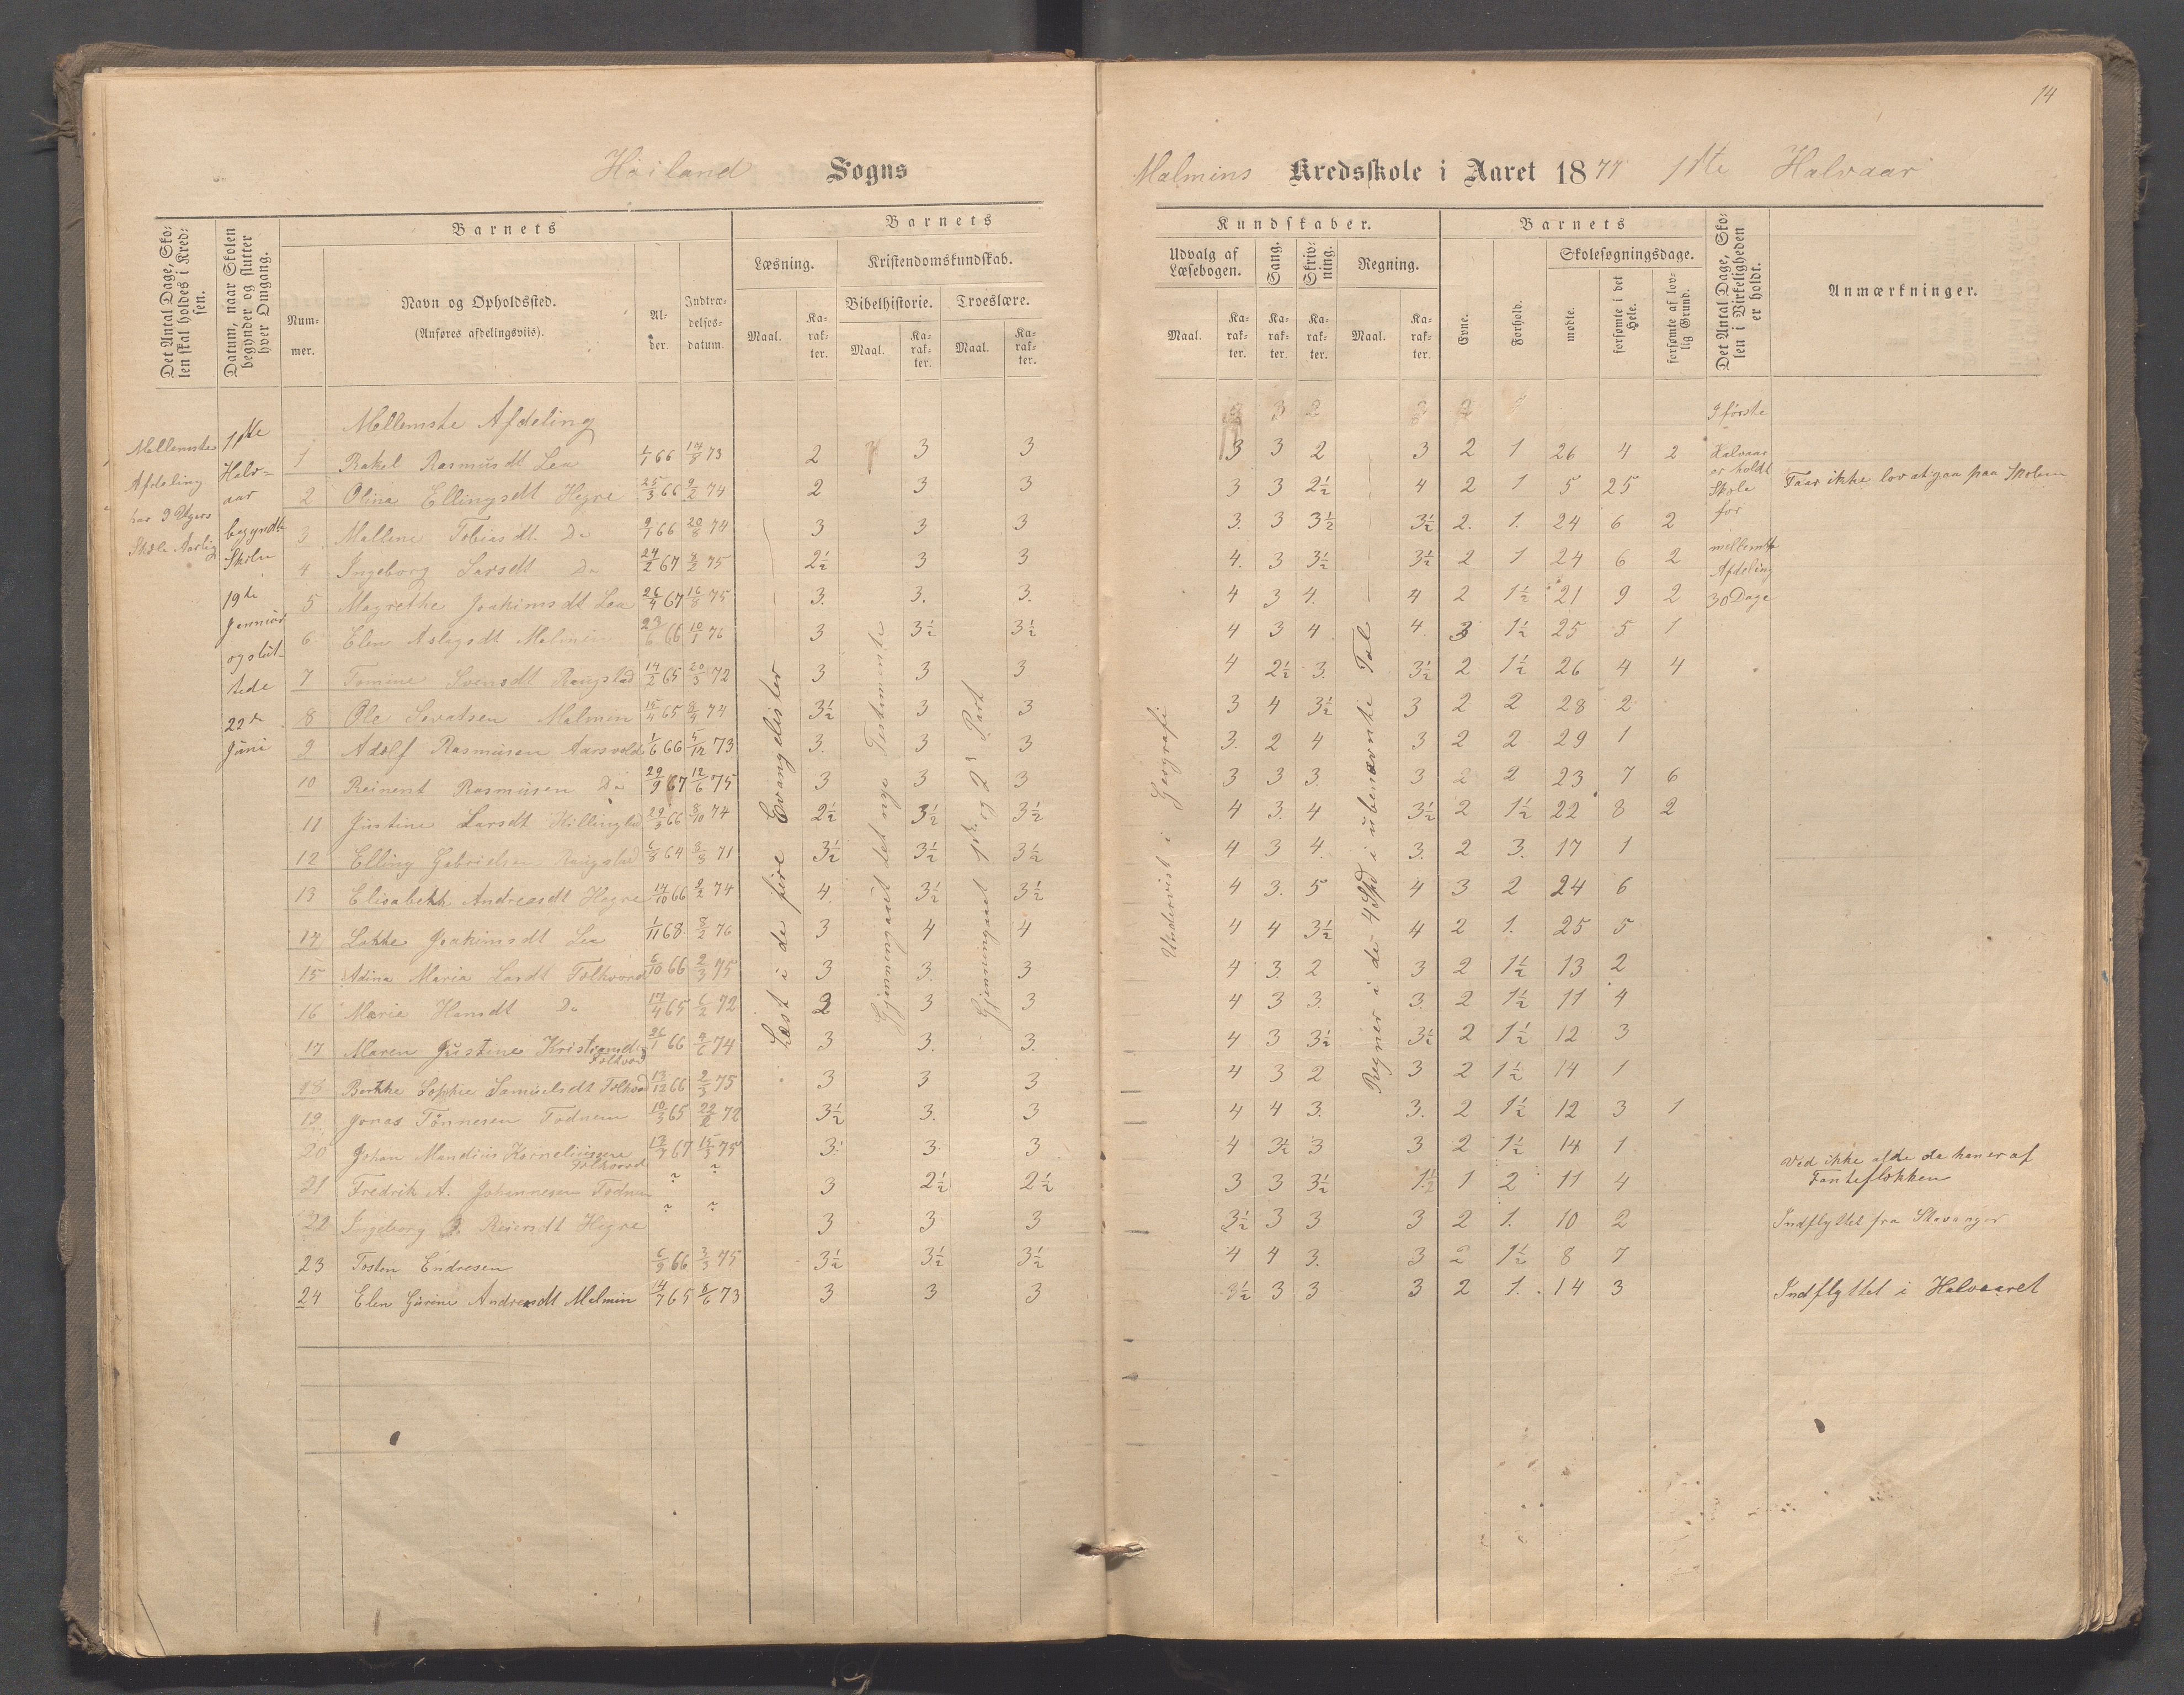 14
Høiland Sogns
Malmins Kredsskole i Aaret 1877 1ste Halvaar
Det Antal Dage, Skolen skal holdes i Kredsen.
Datum, naar Skolen begynder og slutter hver Omgang.
Barnets
Nummer.
Navn og Opholdssted.
(Anføres afdelingsviis).
Alder.
Indtrædelsesdatum.
Barnets
Læsning.
Kristendomskundskab.
Maal.
Karakter.
Bibelhistorie.
Troeslære.
Maal.
Karakter.
Maal.
Karakter.
Kundskaber.
Udvalg af Læsebogen.
Sang.
Skrivning.
Regning.
Maal.
Karakter.
Karakter.
Karakter.
Maal.
Karakter.
Barnets
Evne.
Forhold.
Skolesøgningsdage.
mødte.
forsømte i det Hele.
forsømte af lovlig Grund.
Det Antal Dage, Skolen i Virkeligheden er holdt.
Anmærkninger.
Mellemste
Afdeling
har 9 Ugers
Skole Aarlig
1ste
Halv-
aar
begyndte
Skolen
19de
Januar
og slut-
tede
22de
Juni
Læst i de fire Evangelister
Gjennemgaaet det nye Testamente
Gjennemgaaet 1ste og 2. Part
Undervist i Geografi
Regner i de 4 Spd i ubenævnte Tal
I første
Halvaar
er holdt
Skole
for
mellemste
Afdeling
30 Dage
Mellemste Afdeling
1 Rakel Rasmusdt Lea 1/7 66 14/8 73 2 3 3 3 3 2 3 2 1 26 4 2
2 Olina Ellingsdt Hegre 25/3 66 9/2 74 2 3 3 3 3 2½ 4 2 1 5 25 Faar ikke lov at gaa paa Skolen
3 Mallene Tobiasdt. Do 9/7 66 20/8 74 3 3 3 3. 3 3½ 3½ 2. 1. 24 6 2
4 Ingeborg Larsdt Do 24/2 67 8/2 75 2½ 3 3 4. 3 3½ 3½ 2 1 24 6 2
5 Magrethe Joakimsdt Lea 26/4 67 16/8 75 3. 3. 3. 4 3 4. 4 2 1½ 21 9 2
6 Elen Aslagsdt Malmin 23/6 66 10/1 76 3 3½ 3½ 4 3 4 4. 3 1½ 25 5 1
7 Tomine Svensdt Raugstad 14/2 65 20/3 72 3 3 3 4 2½ 3. 3½ 2 1½ 26 4 4
8 Ole Sevatsen Malmin 15/4 65 8/4 74 3½ 3 3 3 4 3½ 3 2 2 28 2
9 Adolf Rasmusen Aarsvold 1/6 66 5/12 73 3. 3 3 3. 2 4 3 2 2 29 1
10 Reinert Rasmusen Do 29/9 67 12/6 75 3 3 3 3 3 3. 3 2 2 23 7 6
11 Justine Larsdt 29/3 66 8/10 74 2½ 3½ 3½ 4 3. 4 3½ 2 1½ 22 8 2
12 Elling Gabrielsen Raugstad 6/8 64 3/3 71 3½ 3½ 3½ 4 3 4. 3. 2 3. 17 1
13 Elisabeth Andreasdt Hegre 14/10 66 9/2 74 4. 3½ 3½ 4 3. 5 4 3 2 24 6
14 Lakke Joakimsdt Lea 1/11 68 8/2 76 3 4 4 4 4 3½ 4 2 1. 25 5
15 Adina Maria Larsdt Folkvord 6/10 66 2/3 75 3 3. 3 4 3. 2 3 2 1½ 13 2
16 Marie Hansdt Do 17/4 65 6/2 72 3 3 3 4 3 3. 3. 2 1½ 11 4
17 Maren Justine Kristiansdt Folkvord 26/1 66 4/6 74 3 3. 3. 4 3 3½ 3½ 2 1½ 12 3
18 Berthe Sophie Samuelsdt Folkvord 13/12 66 2/3 75 3 3 3 4 3 2 3 2 1½ 14 1
19 Jonas Tønnesen Todnem 10/3 65 22/2 72 3½ 3. 3 4 4 3. 3. 2 1½ 12 3 1
20 Johan Mandius Korneliusen Folkvord 13/7 67 15/3 75 3. 3. 3 4 3½ 3 3 2 1½ 14 1
21 Fredrik A. Johannesen Todnem 3 2½ 2½ 3 3 3½ 1½ 1 2 11 4 Ved ikke alde da han er af Fanteflokken
22 Ingeborg Reiersdt Hegre 3 3 3 3½ 3 3 3 2 1. 10 2 Indflyttet fra Stavanger
23 Tosten Endresen 6/9 66 3/3 75 3½ 3½ 3½ 4 4 3. 3 2 1½ 8 7
24 Elen Gurine Andreasdt Malmin 14/7 65 6/6 73 3 3 3 3½ 3 3 3 2 1. 14 3 Indflyttet i Halvaaret